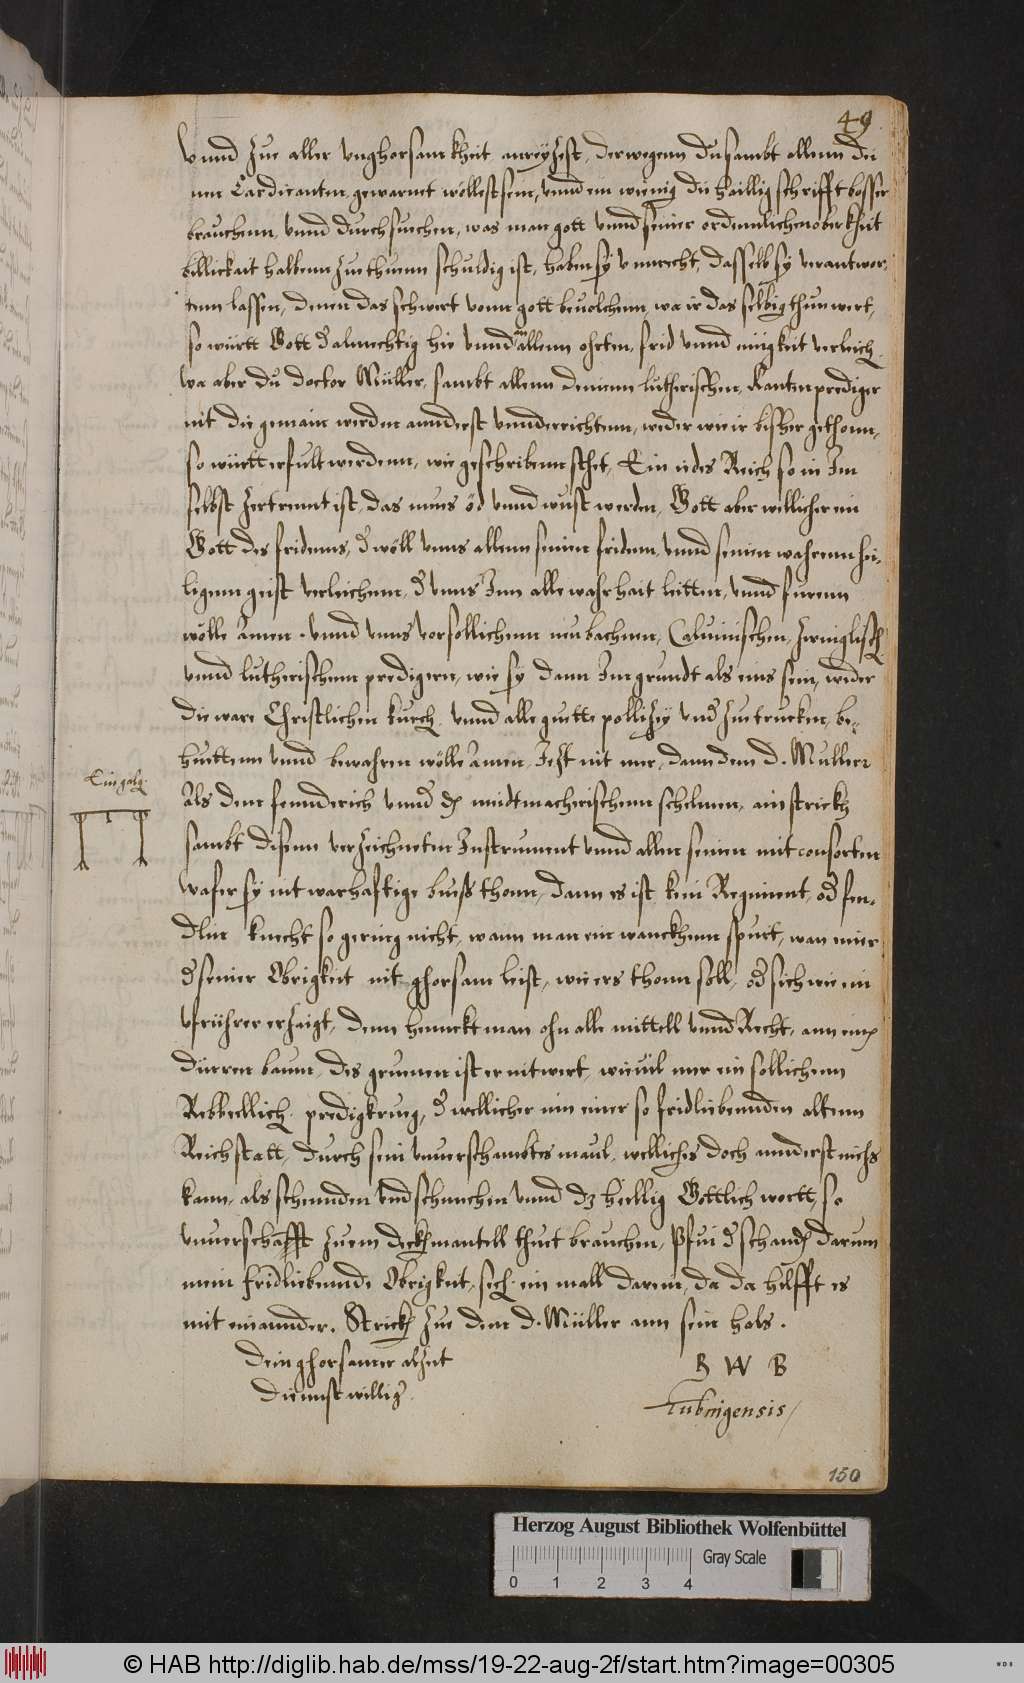 49
Vnnd zue aller vnghorsamkheit anreytzest, derwegenn du sambt allenn dei
nen Cardicanten gewarnet wöllest sein, vnnd ein wienig die haillig schrifft besser
brauchenn, vnnd durchsuechen, was man gott vnnd seiner ordennlichen oberkheit
billickait halbenn zuethuenn schuldig ist, haben sy vnrecht, dasselb sy verantwor,
tenn lassen, denen das schwert vonn gott beuolchenn, wa ir das selbig thun wert,
so württ Gott d almechtig hie vnnd an allenn orten, frid vnnd einigkeit verleich
wa aber du doctor Müller, sambt allenn deinenn lutherischen, Kanten prediger
nit die gemain werden annderst vnnderrichtenn, weder wie ir bissher gethonn,
so württ erfult werdenn, wie geschribenn sthet, Ein iedes Reich so in Im
selbst zertrennt ist, das mues öd vnnd wust werden, Gott aber wellicher ein
Gott des fridenns, d wöll vnns allenn seinen fridenn, vnnd seinen wahrenn hei,
ligenn geist verleichenn, d vnns Inn alle wahrhait leitten, vnnd furenn
wölle Amen. vnnd vnns vor sollichenn neubachnen, Caluinischen, Zwinglisch
vnnd lutherischenn predigern, wie sy dann Im grundt als eins sein, wider
die ware Christlichen kurch, vnnd alle guette pollizey vnd zuetrucken, be,
huettenn vnnd bewahren wölle Amen. Jetzt nit mer, dann dem d. Muller
Ein galg
Als dem fenndrich vnnd d meidtmacherischenn schelmen, ain strickh
sambt disenn verzeichneten Instrument vnnd allen seinen mit consorten
wafer sy nit warhaftige buess thonn, dann es ist kein Regiment, od fen,
dlin knecht so gering nicht, wann man ein wanckhenn spurt, wan einer
d seiner Obrigkeit nit ghorsam leist, wie ers thonn soll, od sich wie ein
vfrührer erzaigt, denn hennckt man ohn alle mittell vnnd Recht, ann ein
dürren baum, des gruenen ist er nit wert, wieuil mer ein sollichenn
Rebbellisch predigkrug, d wellicher inn einer so fridliebennden altenn
Reichstatt, durch sein vnuerschambtes maul, welliches doch annderst nichs
kann, als schennden vnd schmechen vnnd dz heillig Gottlich wortt, so
vnuerschafft zuem deckhmantell thuet brauchen, Pfui d schand, darumm
mein fridliebennde Obrigkeit, sech ein mall darein, da da hilfft es
mit einannder. Strickh zue dem d. Müller ann sein hals.
Dein ghorsamer alzeit
B W B
diennstwillig
Tubingensis
150
Herzog August Bibliothek Wolfenbüttel
Gray Scale
0 1 2 3 4
© HAB http://diglib.hab.de/mss/19-22-aug-2f/start.htm?image=00305